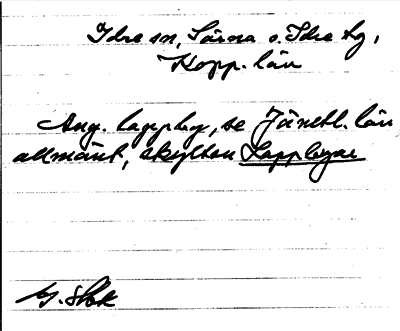 Idre sn, Särna o. Idre tg,
Kopp. län
Ang. lappbyg, se Jämtl. län
allmänt, skylten Lappbyar